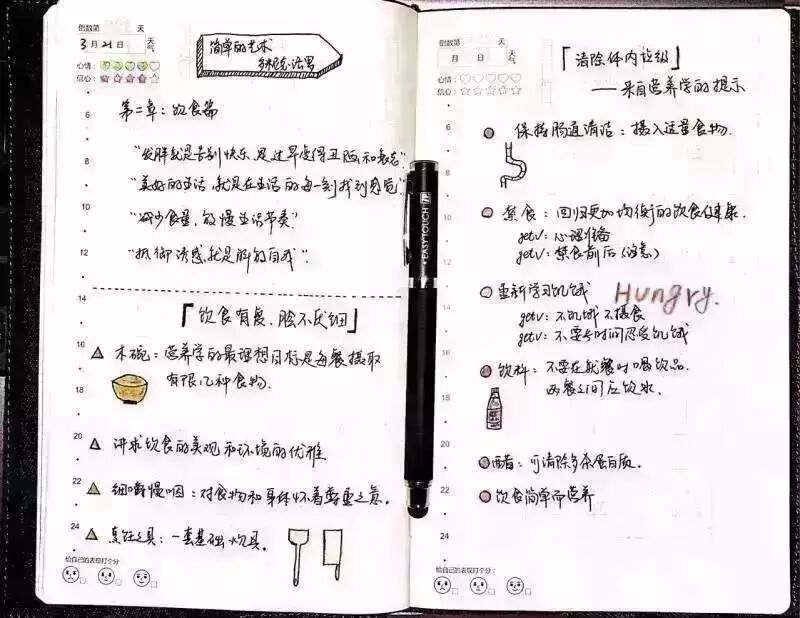 倒数第 天
3月21日 天气
心情:
信心:
简单的艺术
第二章:饮食篇
"发胖就是告别快乐,是过早变得丑陋和衰老"
"美好的生活,就是在生活的每一刻找到感觉"
"减少食量,放慢生活节奏"
"抵御诱惑就是胖的自我"
「饮食有度,脍不厌细」
木碗:营养学的最理想目标是每餐摄取
有限几种食物.
讲求饮食的美观和环境的优雅
细嚼慢咽:对食物和身体怀着尊重之意.
烹饪工具:一套基础炊具.
给自己的表现打个分
6
8
10
12
14
16
18
20
22
24
EASY TOUCH
倒数第 天
月 日 天气
心情:
信心:
「清除体内垃圾」
——来自营养学的提示
保持肠道清洁:摄入适量食物.
禁食:回归更加均衡的饮食健康.
get√:心理准备
get√:禁食前后(注意)
重新学习饥饿 Hungry.
get√:不饥饿 不摄食
get√:不要长时间忍受饥饿
饮料:不要在就餐时喝饮品.
两餐之间应饮水.
醋:可清除多余蛋白质.
饮食简单而营养
给自己的表现打个分:
6
8
10
12
14
16
18
20
22
24